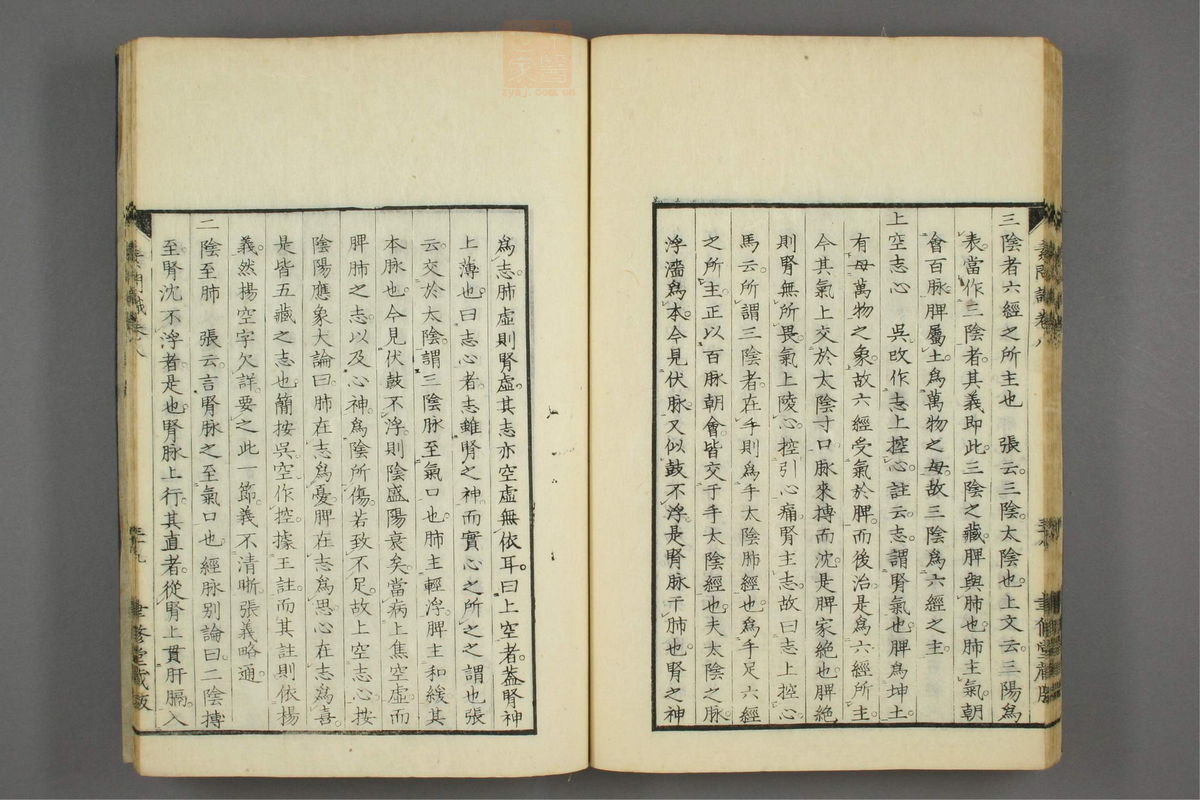 三陰者六經之所主也　張云。三陰。太陰也。上文云。三陽爲
表。當作三陰者。其義即此。三陰之藏。脾與肺也。肺主氣。朝
會百脉。脾屬土。爲萬物之母。故三陰爲六經之主。
上空志心　吳改作志上控心。註云。志。謂腎氣也。脾爲坤土
有母萬物之象。故六經受氣於脾。而後治。是爲六經所主
今其氣上交於太陰寸口。脉來搏而沈。是脾家絶也。脾絶
則腎無所畏。氣上陵心。控引心痛。腎主志。故曰志上控心
馬云。所謂三陰者。在手則爲手太陰肺經也。爲手足六經
之所主。正以百脉朝會。皆交于手太陰經也。夫太陰之脉。
浮濇爲本。今見伏脉。又似鼓不浮。是腎脉干肺也。腎之神
爲志。肺虛則腎虛。其志亦空虛無依耳。曰上空者。蓋腎神
上薄也。曰志心者。志雖腎之神。而實心之所之之謂也。張
云。交於大陰。謂三陰脉至氣口也。肺主輕浮。脾主和緩。其
本脉也。今見伏鼓不浮。則陰盛陽衰矣。當病上焦空虛。而
脾肺之志。以及心神。爲陰所傷。若致不足。故上空志心。按
陰陽應象大論曰。肺在志爲憂。脾在志爲思。心在志爲喜。
是皆五藏之志也。簡按吳空作控。據王註。而其註則依揚
義。然揚空字欠詳。要之此一節。義不清晰。張義略通。
二陰至肺　張云。言腎脉之至氣口也。經脉別論曰。二陰搏
至。腎沈不浮者。是也。腎脉上行。其直者。從腎上貫肝膈。入